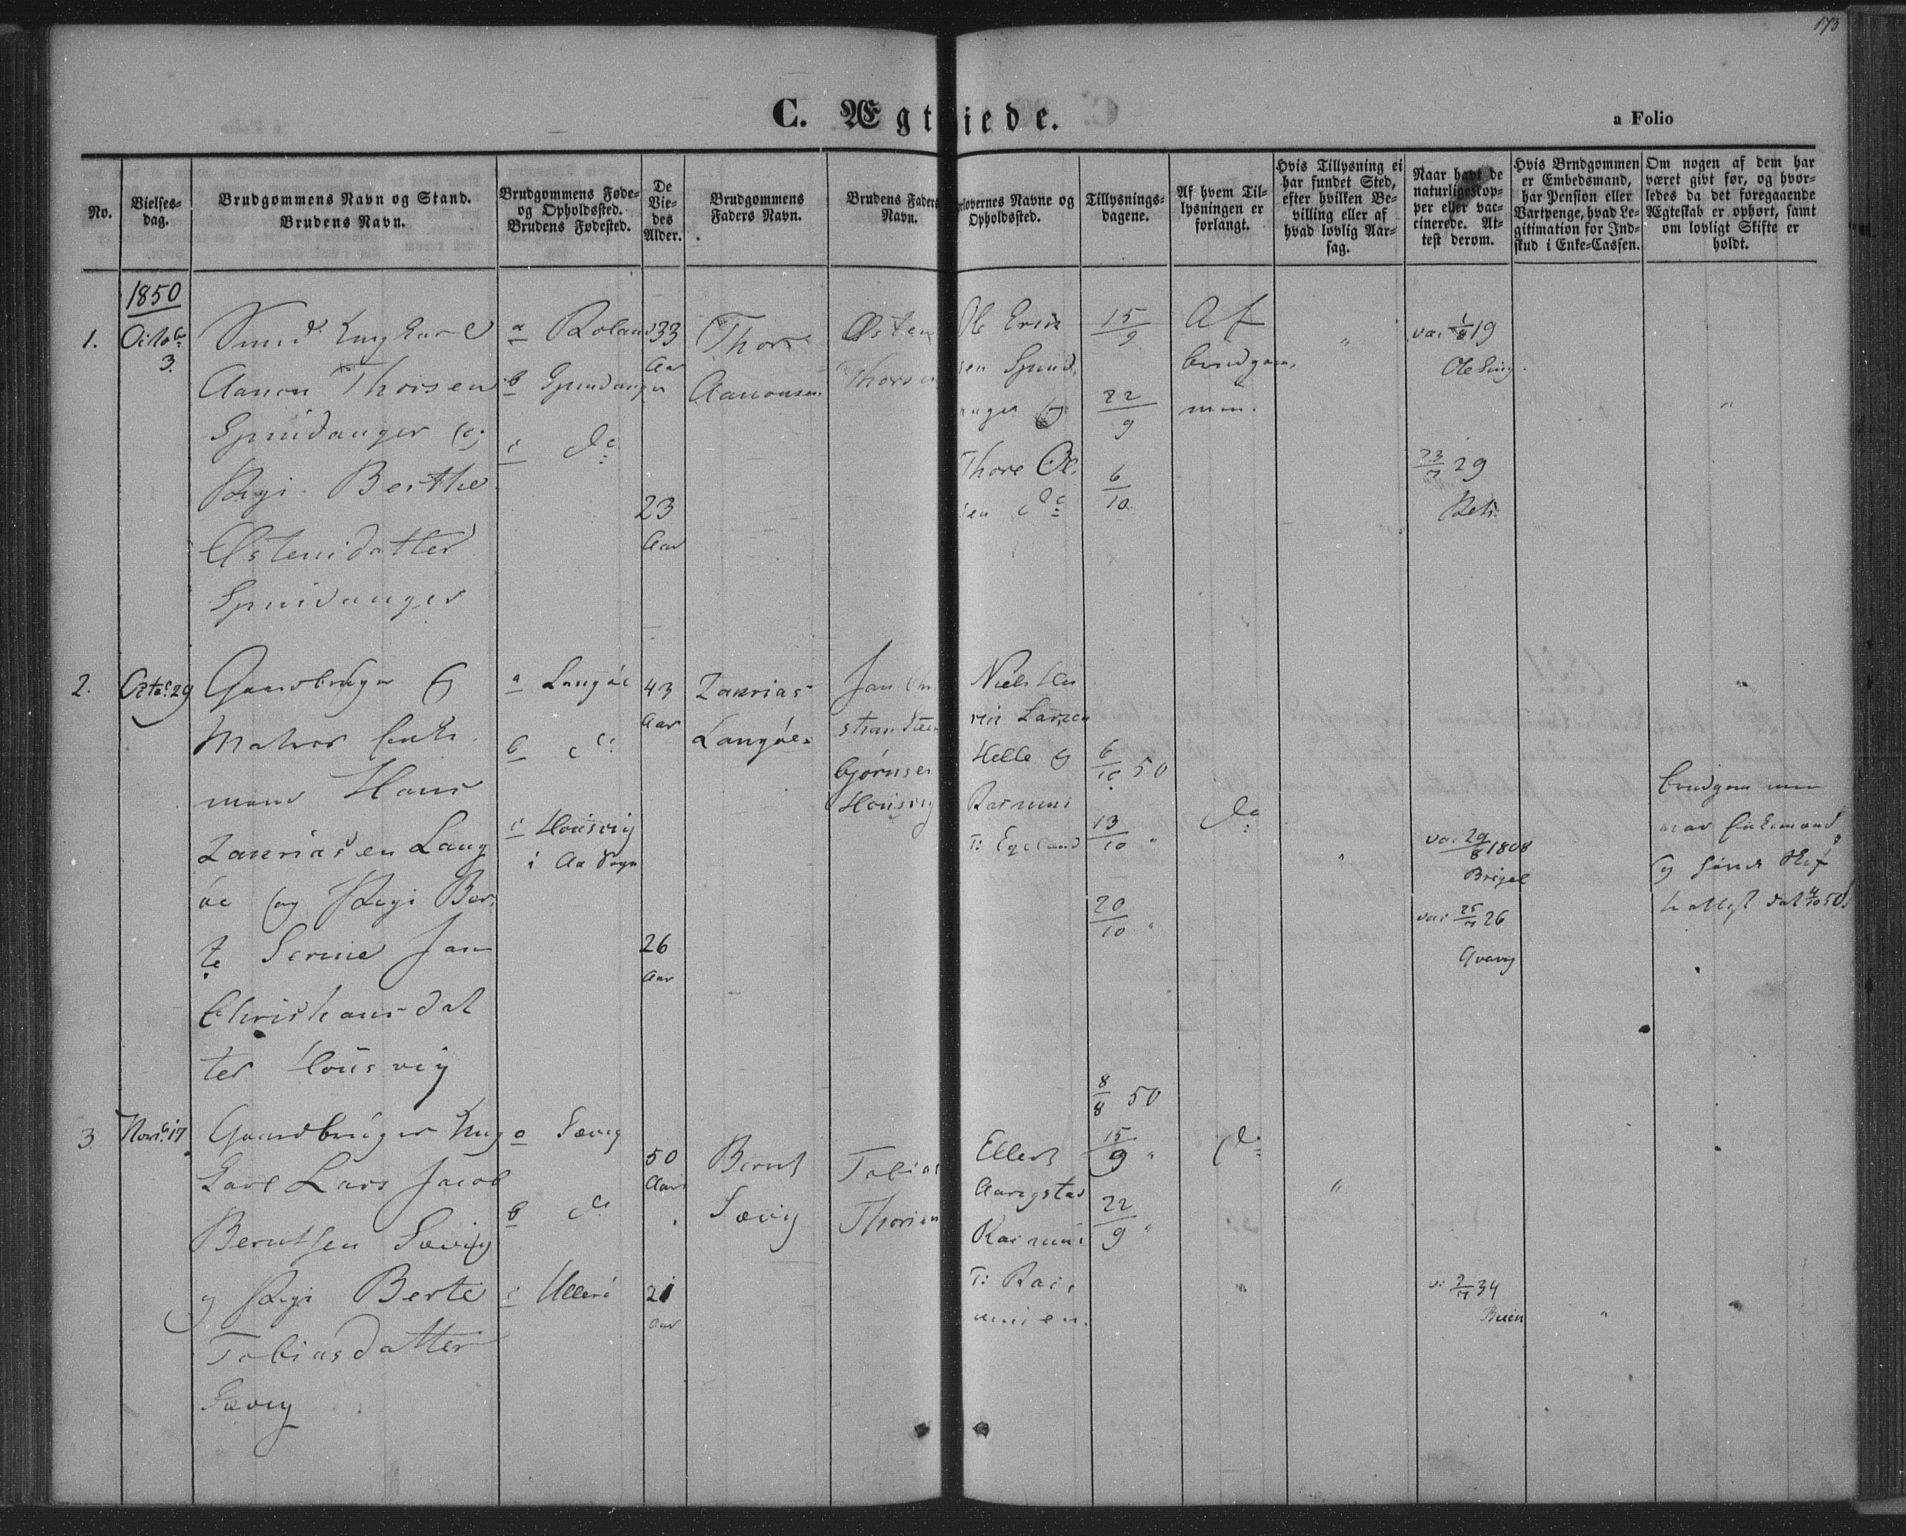 173
C. Ægteviede.
a Folio
No.
Vielses-
dag.
Brudgommens Navn og Stand.
Brudens Navn.
Brudgommens Føde-
og Opholdssted.
Brudens Fødested.
De
Vie-
des
Alder.
Brudgommens
Faders Navn.
Brudens Faders
Navn.
orlovernes Navne og
Opholdssted.
Tillysnings-
dagene.
Af hvem Til-
lysningen er
forlangt.
Hvis Tillysning ei
har fundet Sted,
efter hvilken Be-
villing eller af
hvad lovlig Aar-
sag.
Naar havt de
naturlige Kop-
per eller vac-
cinerede. At-
test derom.
Hvis Brudgommen
er Embedsmand,
har Pension eller
Vartpenge, hvad Le-
gitimation for Ind-
skud i Enke-Cassen.
Om nogen af dem har
været givt før, og hvor-
ledes da det foregaaende
Ægteskab er ophørt, samt
om lovligt Skifte er
holdt.
1850
1.
Octob
3.
Smed Ungkarl
Aanon Thorsen
Spindanger og
Pige Berthe
Østensdatter
Spindanger
a Roland
b Spindanger
c do
33
Aar
23
Aar
Thore
Aanonsen
Østen
Thorsen
Ole Erik
sen Spind
anger og
Thore Ol
sen do
15/9
22/9
6/10
Af
brudgom
men.
"
vac 1/8 19
23/7 29
"
2.
Octob 29
Gaardbruger og
Matros Enke
mand Hans
Zakriasen Lang
øe og Pige Ber
te Serine Jan
Christiansdat
ter Housvig
a Langøe
b do
c Housvig
i Aa Sogn
43
Aar
26
Aar
Zakrias
Langøe
Jan Chri
stian Steen
bjørnsen
Housvig
Niels Hen
rik Larsen
Helle og
Rasmus
T: Egeland
6/10 50
13/10 "
20/10 "
do
"
vac 29/8 1808
vac 25/7 26
brudgommen
var Enkemand
og
3
Novb 17
Gaardbruger Ung
karl Lars Jacob
Berntsen Sævig
og Pige Berte
Tobiasdatter
Sævig
a Sævig
b do
c Ullerø
50
Aar
21
Aar
Bernt
Sævig
Tobias
Thorsen
Ellert
Aarigstad
Rasmus
T: Ras
musen.
8/8 50
15/9 "
22/9 "
do
"
v: 2/7 34
Buen
"